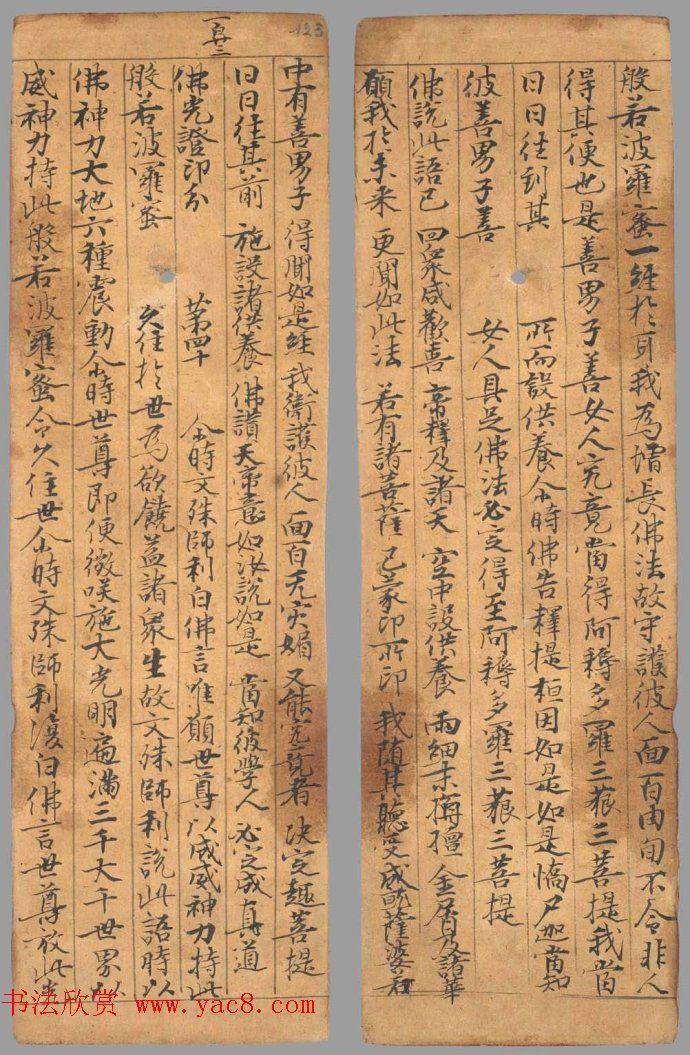 般若波羅蜜一經於耳我為增長佛法故守護彼人面百由旬不令非人
得其便也是善男子善女人究竟當得阿耨多羅三藐三菩提我當
日日往到其所而設供養尒時佛告釋提桓因如是如是憍尸迦當知
彼善男子善女人具足佛法必定得至阿耨多羅三藐三菩提
佛說此語已四眾咸歡喜帝釋及諸天空中設供養雨細末栴檀金屑及諸華
願我於未來更聞如此法若有諸菩薩已蒙印所印我隨其聽受咸薩婆若
一百二
123
中有善男子得聞如是經我衛護彼人面百无災媚又能究竟者決定趣菩提
日日往其前施設諸供養佛讚天帝意如汝說如是當知彼學人必定成真道
佛光證印分第四十尒時文殊師利白佛言唯願世尊以威威神力持此
般若波羅蜜久住於世為欲饒益諸眾生故文殊師利說此語時以
佛神力大地六種震動尒時世尊即便微咲施大光明遍滿三千大千世界以
威神力持此般若波羅蜜令久住世尒時文殊師利復白佛言世尊放此光
书法欣赏 www.yac8.com